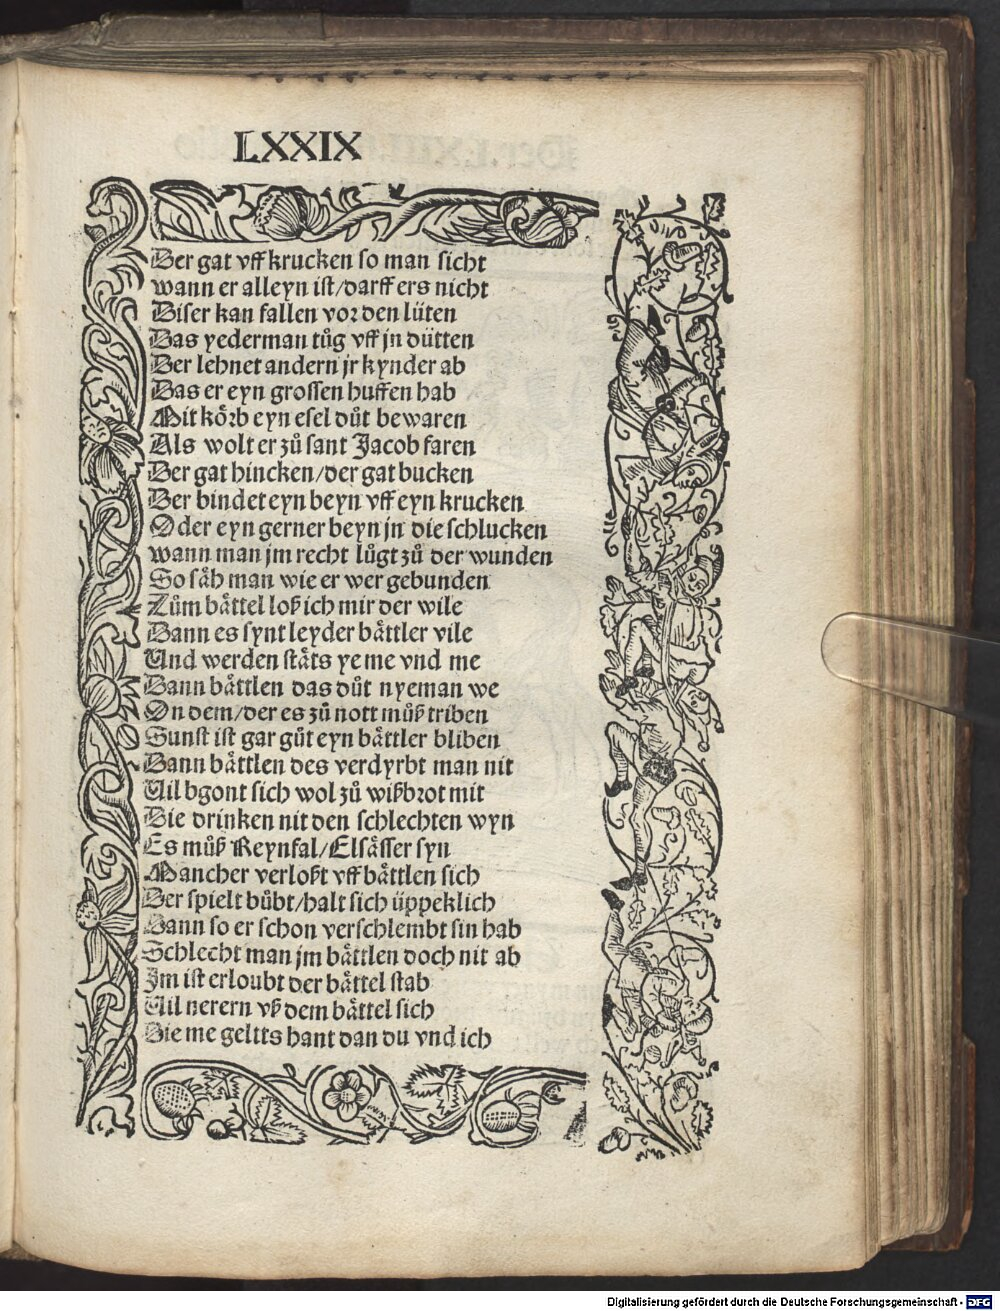 LXXIX
Der gat vff krucken so man sicht
wann er alleyn ist/darff ers nicht
Diser kan fallen vor den lüten
Das yederman tůg vff jn dütten
Der lehnet andern jr kynder ab
Das er eyn grossen huffen hab
Mit kǒrb eyn esel důt bewaren
Als wolt er zů sant Jacob faren
Der gat hincken/der gat bucken
Der bindet eyn beyn vff eyn krucken
Oder eyn gerner beyn jn die schlucken
wann man jm recht lůgt zů der wunden
So såh man wie er wer gebunden
Zům båttel loß ich mir der wile
Dann es synt leyder båttler vile
Und werden ståts ye me vnd me
Dann båttlen das důt nyeman we
On dem/der es zů nott můß triben
Sunst ist gar gůt eyn båttler bliben
Dann båttlen des verdyrbt man nit
Uil bgont sich wol zů wißbrot mit
Die drinken nit den schlechten wyn
Es můß Reynfal/Elsåsser syn
Mancher verloßt vff båttlen sich
Der spielt bůbt/halt sich üppeklich
Dann so er schon verschlembt sin hab
Schlecht man jm båttlen doch nit ab
Im ist erloubt der båttel stab
Uil nerern vß dem båttel sich
Die me geltts hant dan du vnd ich
Digitalisierung gefördert durch die Deutsche Forschungsgemeinschaft - DFG